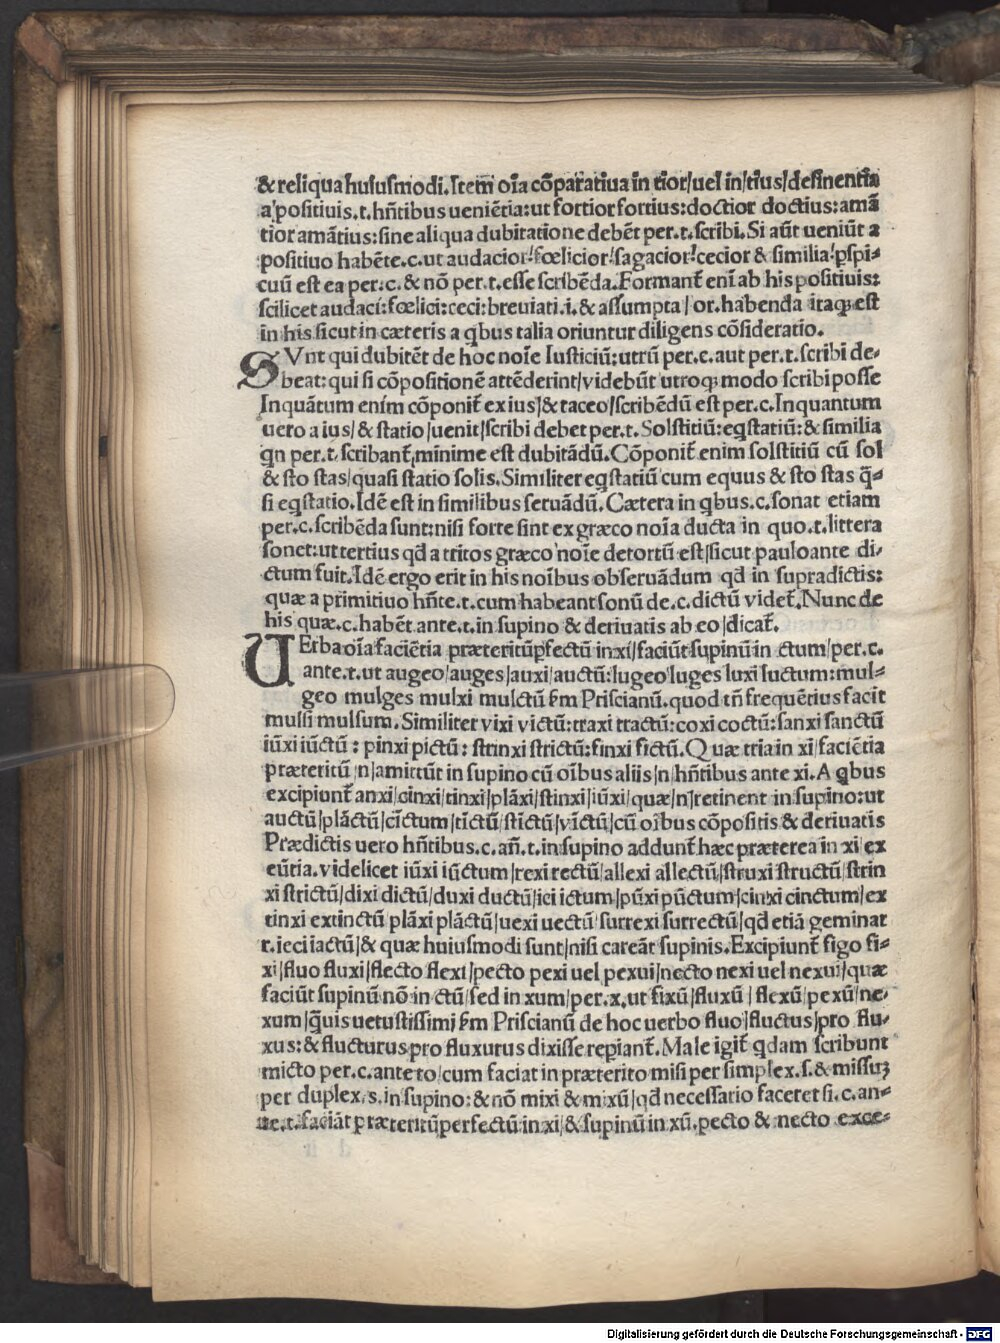 & reliqua huiusmodi. Item oīa cōparatiua in tior/uel in/tius/desinentia
a'positiuis.t.hñtibus ueniētia:ut fortior fortius:doctior doctius:amā
tior amātius:sine aliqua dubitatione debēt per.t.scribi. Si aūt ueniūt a
positiuo habēte.c.ut audacior/fœlicior/sagacior/cecior & similia/pspi-
cuū est ea per.c.& nō per.t.esse scribēda. Formant̄ enī ab his positiuis:
scilicet audaci:fœlici:ceci:breuiati.i.& assumpta/or.habenda itaqꝫ est
in his sicut in cæteris a qbus talia oriuntur diligens cōsideratio.
SVnt qui dubitēt de hoc noīe Iusticiū:utrū per.c.aut per.t.scribi de-
beat:qui si cōpositionē attēderint/videbūt utroqꝫ modo scribi posse
Inquātum enim cōponit̄ ex ius/& taceo/scribēdū est per.c.Inquantum
uero a ius/& statio/uenit/scribi debet per.t. Solstitiū:eqstatiū:& similia
qn per.t.scribant̄/minime est dubitādū. Cōponit̄ enim solstitiū cū sol
& sto stas/quasi statio solis. Similiter eqstatiū cum equus & sto stas q̄-
si eqstatio. Idē est in similibus seruādū. Cætera in qbus.c.sonat etiam
per.c.scribēda sunt:nisi forte sint ex græco noīa ducta in quo.t.littera
sonet:ut tertius qd a tritos græco noīe detortū est/sicut pauloante di-
ctum fuit. Idē ergo erit in his noībus obseruādum qd in supradictis:
quæ a primitiuo hñte.t.cum habeant sonū de.c.dictū videt̄. Nunc de
his quæ.c.habēt ante.t.in supino & deriuatis ab eo/dicat̄.
UErba oīa faciētia præteritūpfectū in xi/faciūt supinū in ctum/per.c.
ante.t.ut augeo/auges/auxi/auctū:lugeo luges luxi luctum:mul-
geo mulges mulxi mulctū ꝶm Priscianū.quod tñ frequētius facit
mulsi mulsum. Similiter vixi victū:traxi tractū:coxi coctū:sanxi sanctū
iūxi iūctū: pinxi pictū: strinxi strictū:finxi fictū. Quæ tria in xi/faciētia
præteritū/n/amittūt in supino cū oībus aliis/n/hñtibus ante xi. A qbus
excipiunt̄ anxi/cinxi/tinxi/plāxi/stinxi/iūxi/quæ/n/retinent in supino:ut
auctū/plāctū/cīctum/tīctū/stīctū/vīctū/cū oībus cōpositis & deriuatis
Prædictis uero hñtibus.c.añ.t.in supino addunt̄ hæc præterea in xi/ex
eūtia.videlicet iūxi iūctum/rexi rectū/allexi allectū/struxi structū/strin
xi strictū/dixi dictū/duxi ductū/ici ictum/pūxi pūctum/cinxi cinctum/ex
tinxi extinctū plāxi plāctū/uexi uectū/surrexi surrectū/qd etiā geminat
r.ieci iactū/& quæ huiusmodi sunt/nisi careāt supinis. Excipiunt̄ figo fi-
xi/fluo fluxi/flecto flexi/pecto pexi uel pexui/necto nexi uel nexui/quæ
faciūt supinū nō in ctū/sed in xum/per.x.ut fixū/fluxū/flexū/pexū/ne-
xum/q̄uis uetustissimi ꝶm Priscianū de hoc uerbo fluo/fluctus/pro flu-
xus:& flucturus pro fluxurus dixisse repiant̄. Male igit̄ qdam scribunt
micto per.c.ante to/cum faciat in præterito misi per simplex.s.& missuꝫ
per duplex.s.in supino:& nō mixi & mixū/qd necessario faceret si.c.an-
te.t.faciāt præteritūperfectū in xi/& supinū in xū.pecto & necto exce-
Digitalisierung gefördert durch die Deutsche Forschungsgemeinschaft - DFG